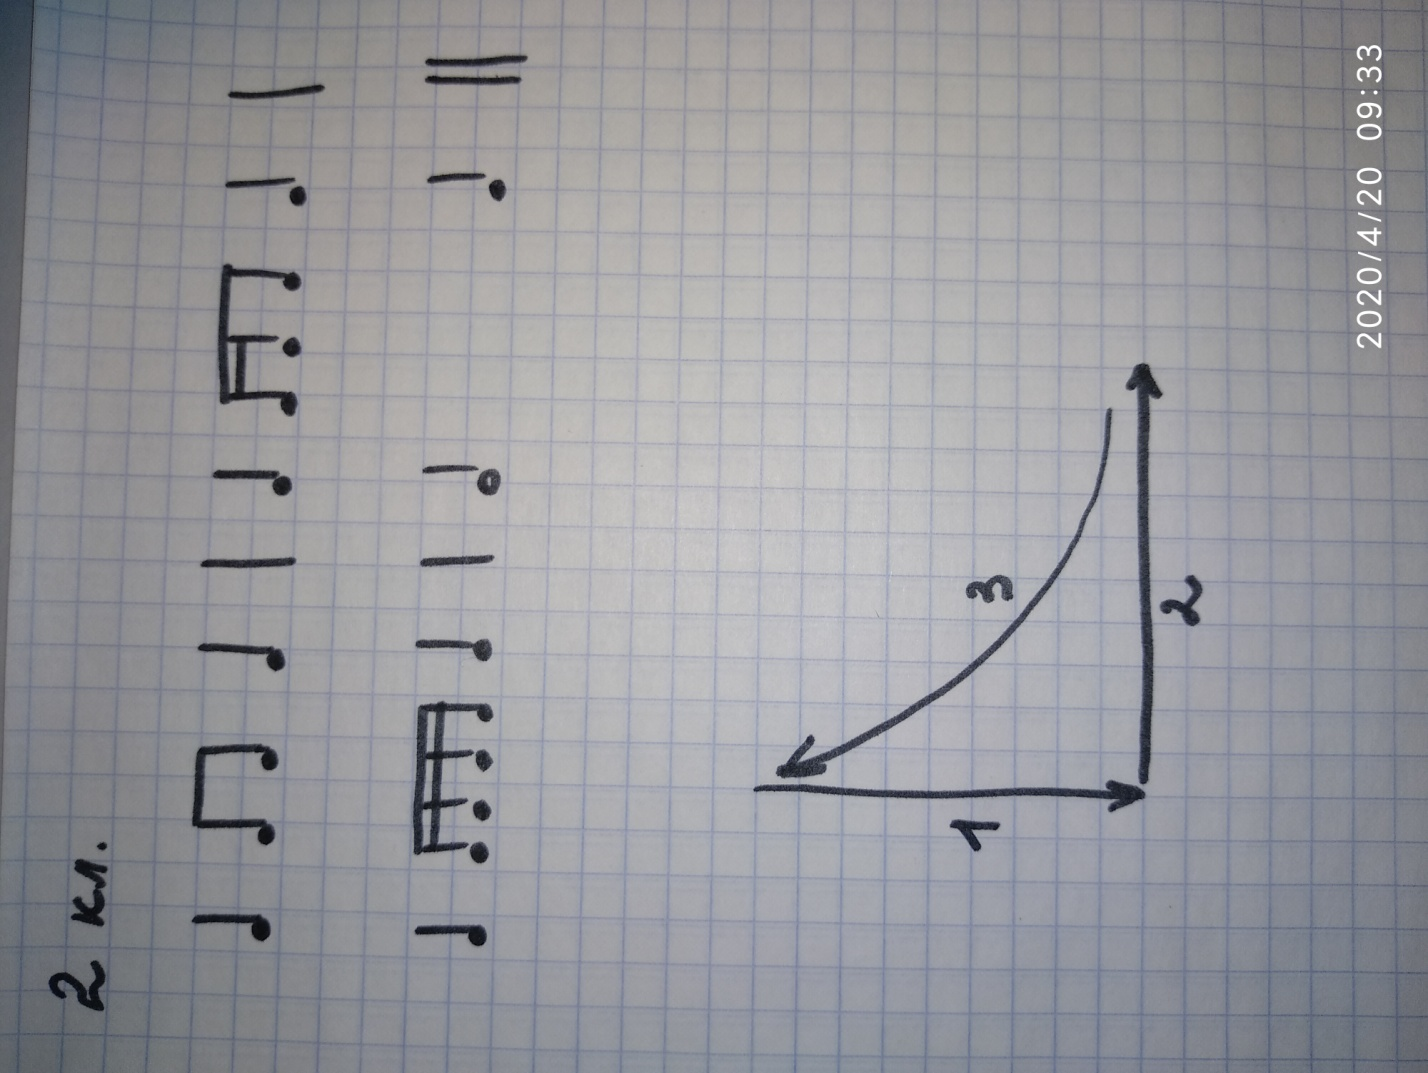 2 кл.
1
2
3
2020/4/20 09:33